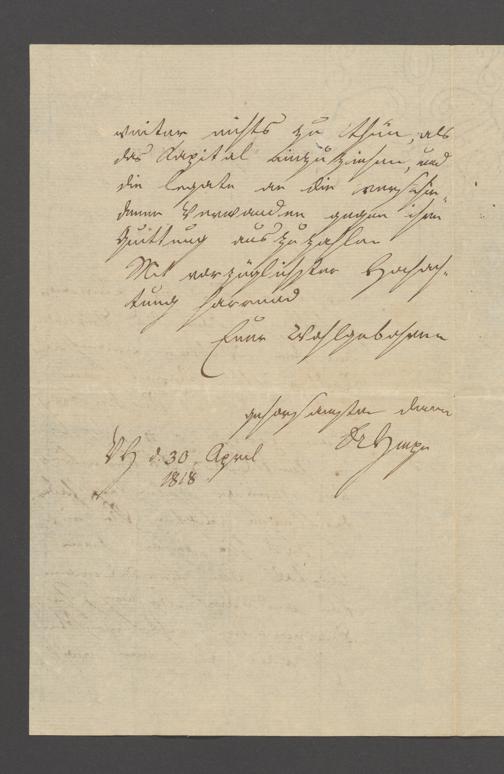 weiter nichts zu thun, als
das Kapital einzuziehen, und
die Legate an die verschie-
denen Verwanden gegen ihre
Quittung auszuzahlen
Mit vorzüglichster Hochach-
tung harrend
Euer Wohlgebohren
gehorsamster Diener
d. 30 April
1818